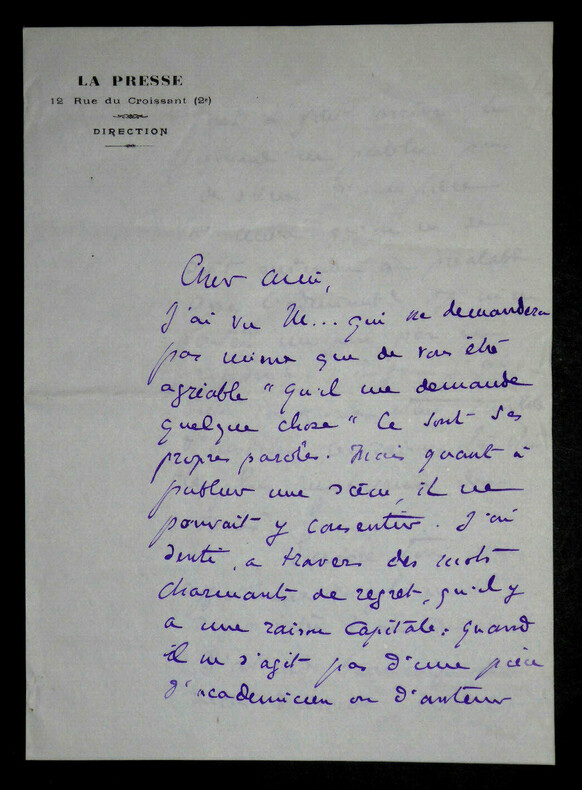 LA PRESSE
12 Rue du Croissant (2e)
DIRECTION
Cher ami,
J'ai vu M... qui ne demandera
pas mieux que de vous être
agréable "qu'il me demande
quelque chose" Ce sont ses
propres paroles. Mais quant à
publier une scène, il ne
pouvait y consentir. J'ai
senti, a travers des mots
charmants de regret, qu'il y
a une raison capitale: quand
il ne s'agit pas d'une pièce
d'academicien ou d'auteur